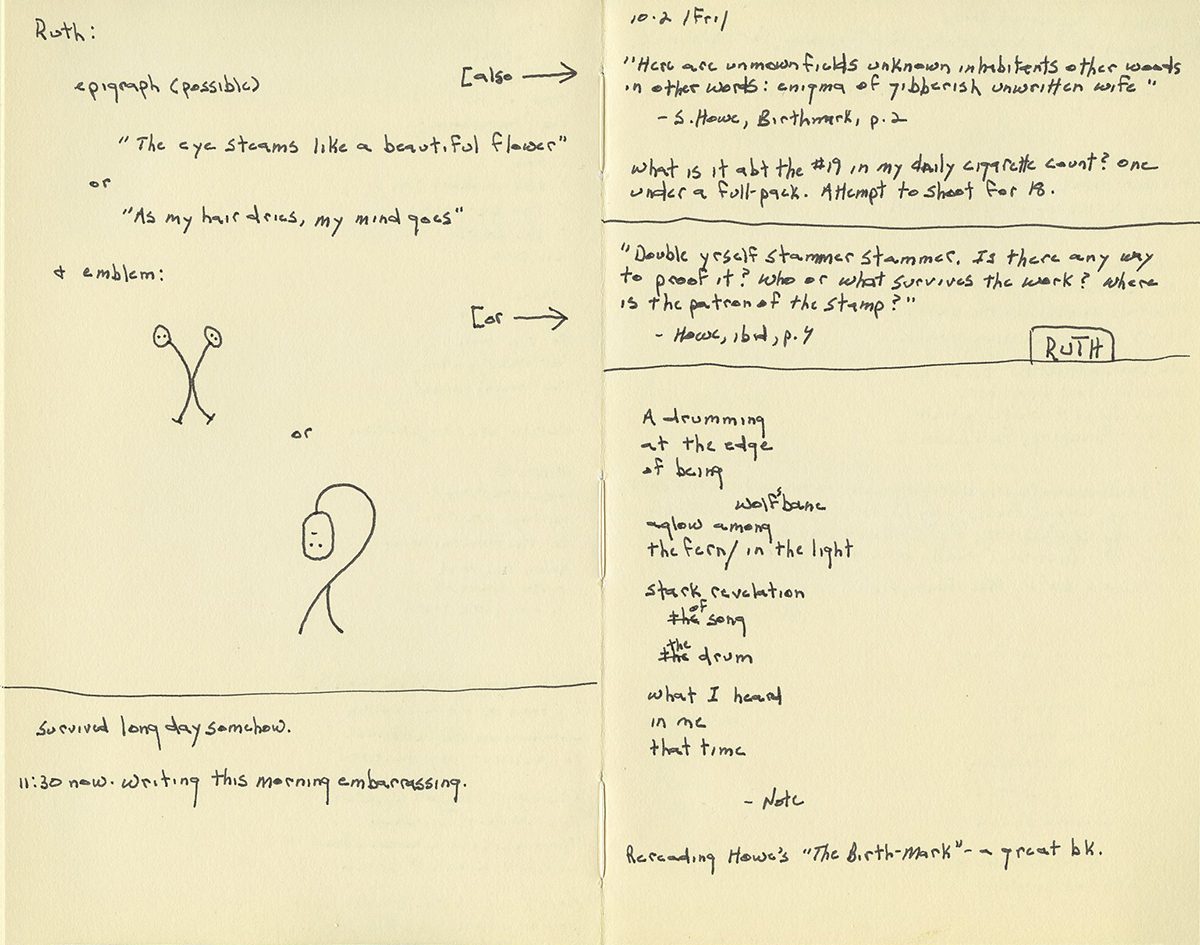 Ruth:
epigraph (possible)
[also →
"The eye steams like a beautiful flower"
or
"As my hair dries, my mind goes"
& emblem:
[or →
or
Survived long day somehow.
11:30 now. Writing this morning embarrassing.
10.2 /Fri/
"Here are unmown fields unknown inhabitents other woods
in other words: enigma of gibberish unwritten wife"
- S. Howe, Birthmark, p.2
What is it abt the #19 in my daily cigarette count? One
under a full-pack. Attempt to shoot for 18.
"Double yrself stammer stammer. Is there any way
to proof it? Who or what survives the work? Where
is the patron of the stamp?"
- Howe, ibid, p.4
RUTH
A drumming
at the edge
of being
wolf'sbane
aglow among
the fern/ in the light
stark revelation
of
the song
the
the drum
what I heard
in me
that time
- Note
Rereading Howe's "The Birth-Mark" - a great bk.